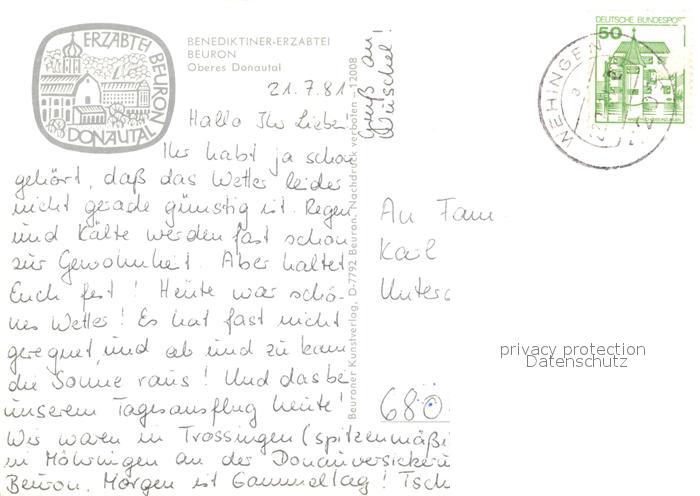 ERZABTEI BEURON
DONAUTAL
BENEDIKTINER-ERZABTEI
BEURON
Oberes Donautal
21.7.81
Gruß an
Wutschel!
Hallo Ihr Lieben!
Ihr habt ja schon
gehört, daß das Wetter leider
nicht gerade günstig ist. Regen
und Kälte werden fast schon
zur Gewohnheit. Aber haltet
Euch fest! Heute war schö-
nes Wetter! Es hat fast nicht
geregnet, und ab und zu kam
die Sonne raus! Und das bei
unserem Tagesausflug heute!
Wir waren in Trossingen (spitzenmäßi
in Möhringen an der Donauversickerun
Beuron. Morgen ist Gammeltag! Tsch
Beuroner Kunstverlag, D-7792 Beuron. Nachdruck verboten - 12008
DEUTSCHE BUNDESPOST
50
WEHINGEN
An Fam.
Karl
Unter
680
privacy protection
Datenschutz